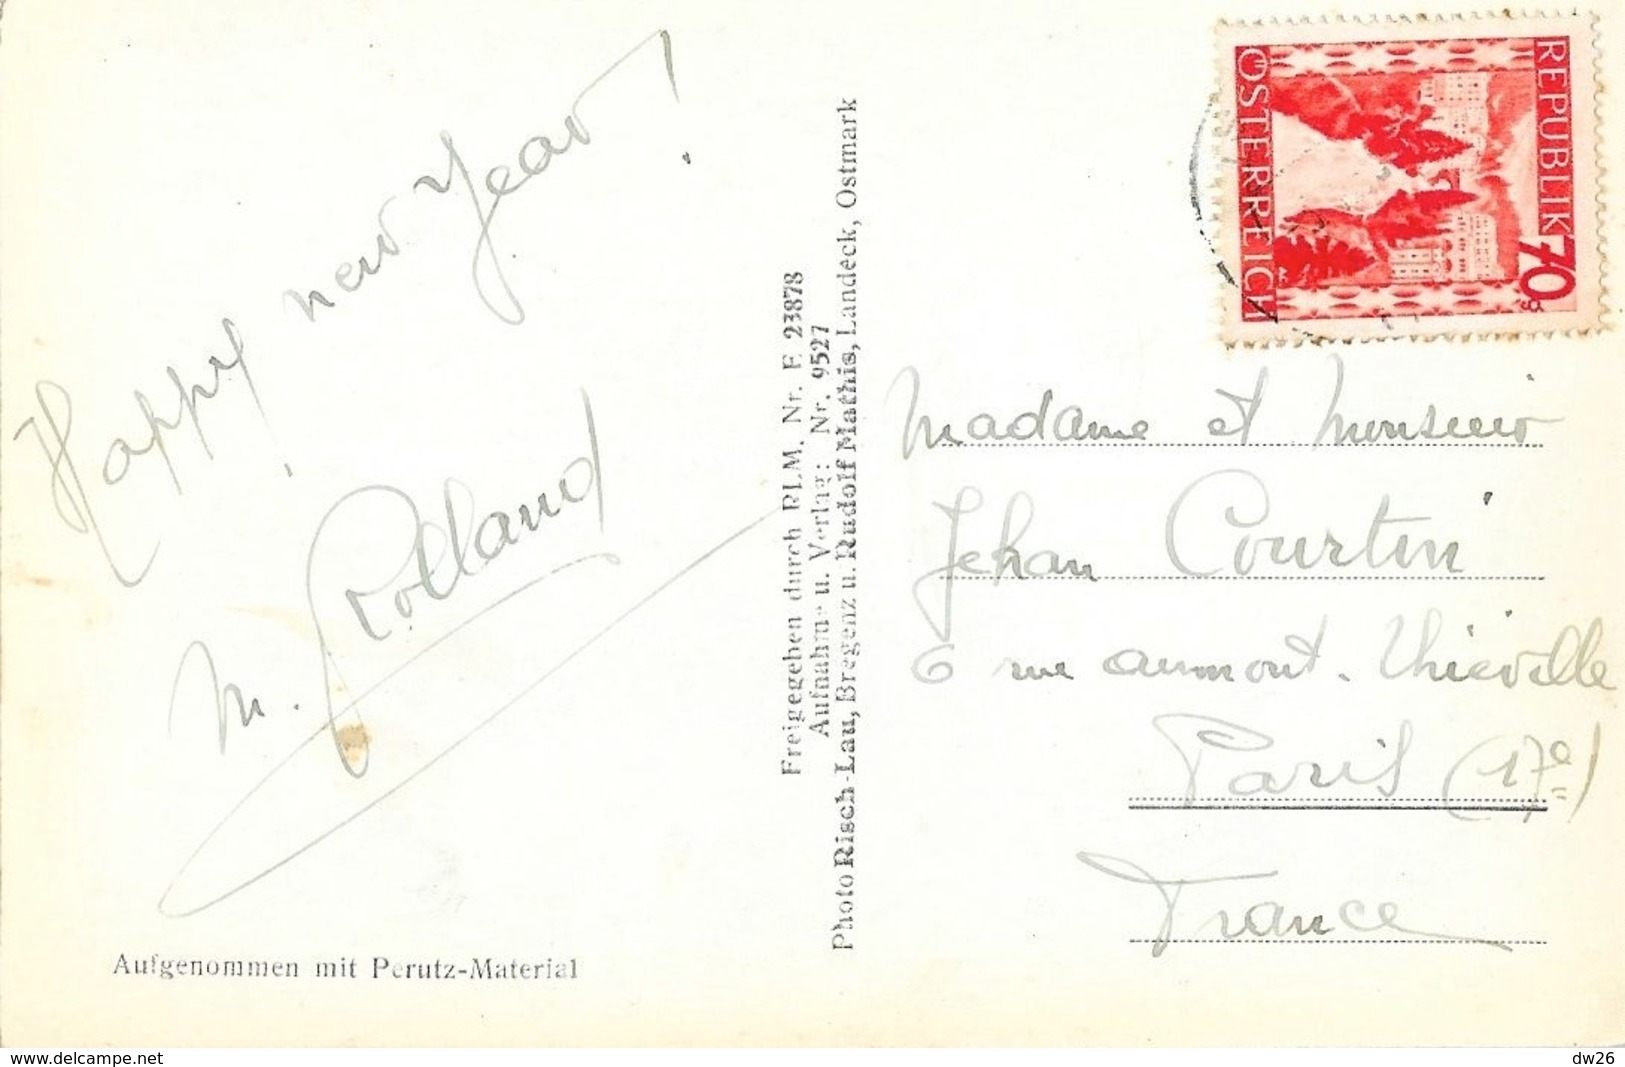 Happy new Year !
M. Rolland
Aufgenommen mit Perutz-Material
Freigegeben durch RLM. Nr. F 23878
Aufnahme u. Verlag: Nr. 9527
Photo Risch-Lau, Bregenz u. Rudolf Mathis, Landeck, Ostmark
REPUBLIK
70
g
ÖSTERREICH
Madame et Monsieur
Jehan Courtin
6 rue Aumont. Thiéville
Paris (17e)
France
www.delcampe.net
dw26